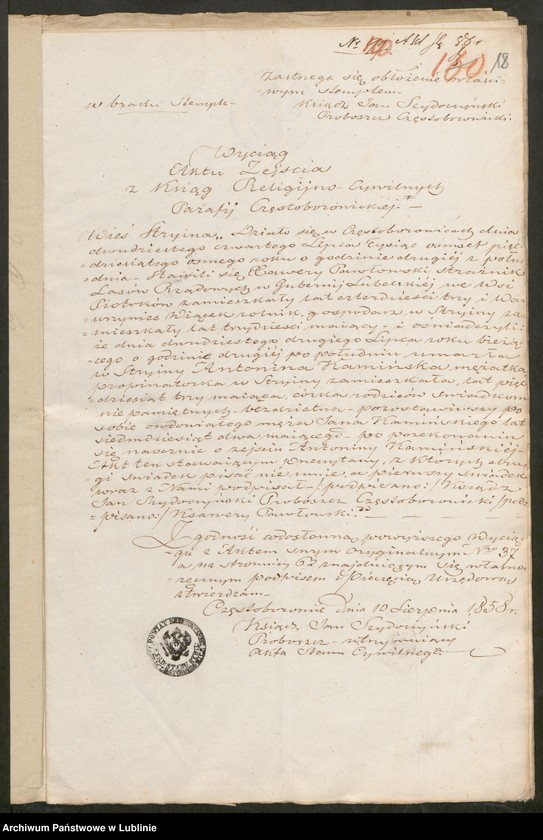 18
150.
w braku Stempla
Zastrzega się obłożenie właści-
wym stemplem
Ksiądz Jan Szydoczyński
Proboszcz Częstoborowicki
Wyciąg
Aktu Zejścia
z Ksiąg Religijno-Cywilnych
Parafij Częstoborowickiej
Wieś Stryina. Działo się w Częstoborowicach dnia
dwudziestego czwartego Lipca tysiąc ośmset pięć-
dziesiątego ósmego roku o godzinie drugiej z połu-
dnia. Stawili się Xawery Pawłowski Strażnik
Lasów Rządowych w Gubernij Lubelskiej we Wsi
Piotrków zamieszkały lat czterdzieści trzy i Waw-
wrzyniec Wiącek rolnik, gospodarz w Stryiny za-
mieszkały lat trzydzieści maiący i oświadczyli
że dnia dwudziestego drugiego Lipca roku bieżą-
cego o godzinie drugiej po południu umarła
w Stryiny Antonina Kamińska mężatka
propinatorka w Stryiny zamieszkała, lat pięć-
dziesiąt trzy maiąca, córka rodziców świadkom
niepamiętnych bezdzietna pozostawiwszy po
sobie owdowiałego męża Jana Kamińskiego lat
siedmdziesiąt dwa maiącego po przekonaniu
się naocznie o zejściu Antoniny Kamińskiej
Akt ten stawaiącym przeczytany, z których dru-
gi świadek pisać nie umie, a pierwszy świadek
wraz z Nami podpisał. /podpisano:/ Ksiądz
Jan Szydoczyński Proboszcz Częstoborowicki /pod-
pisano:/ Ksawery Pawłowski.
Zgodność co do słowna powyższego Wycią-
gu z Aktem swym oryginalnym Nro 37
a na stronnicy 62 znajdującym się własno-
ręcznym podpisem i Pieczęcią Urzędową
stwierdzam.
Częstoborowice dnia 10 Sierpnia 1858 r.
Ksiądz Jan Szydoczyński
Proboszcz utrzymuiący
Akta Stanu Cywilnego
Archiwum Państwowe w Lublinie